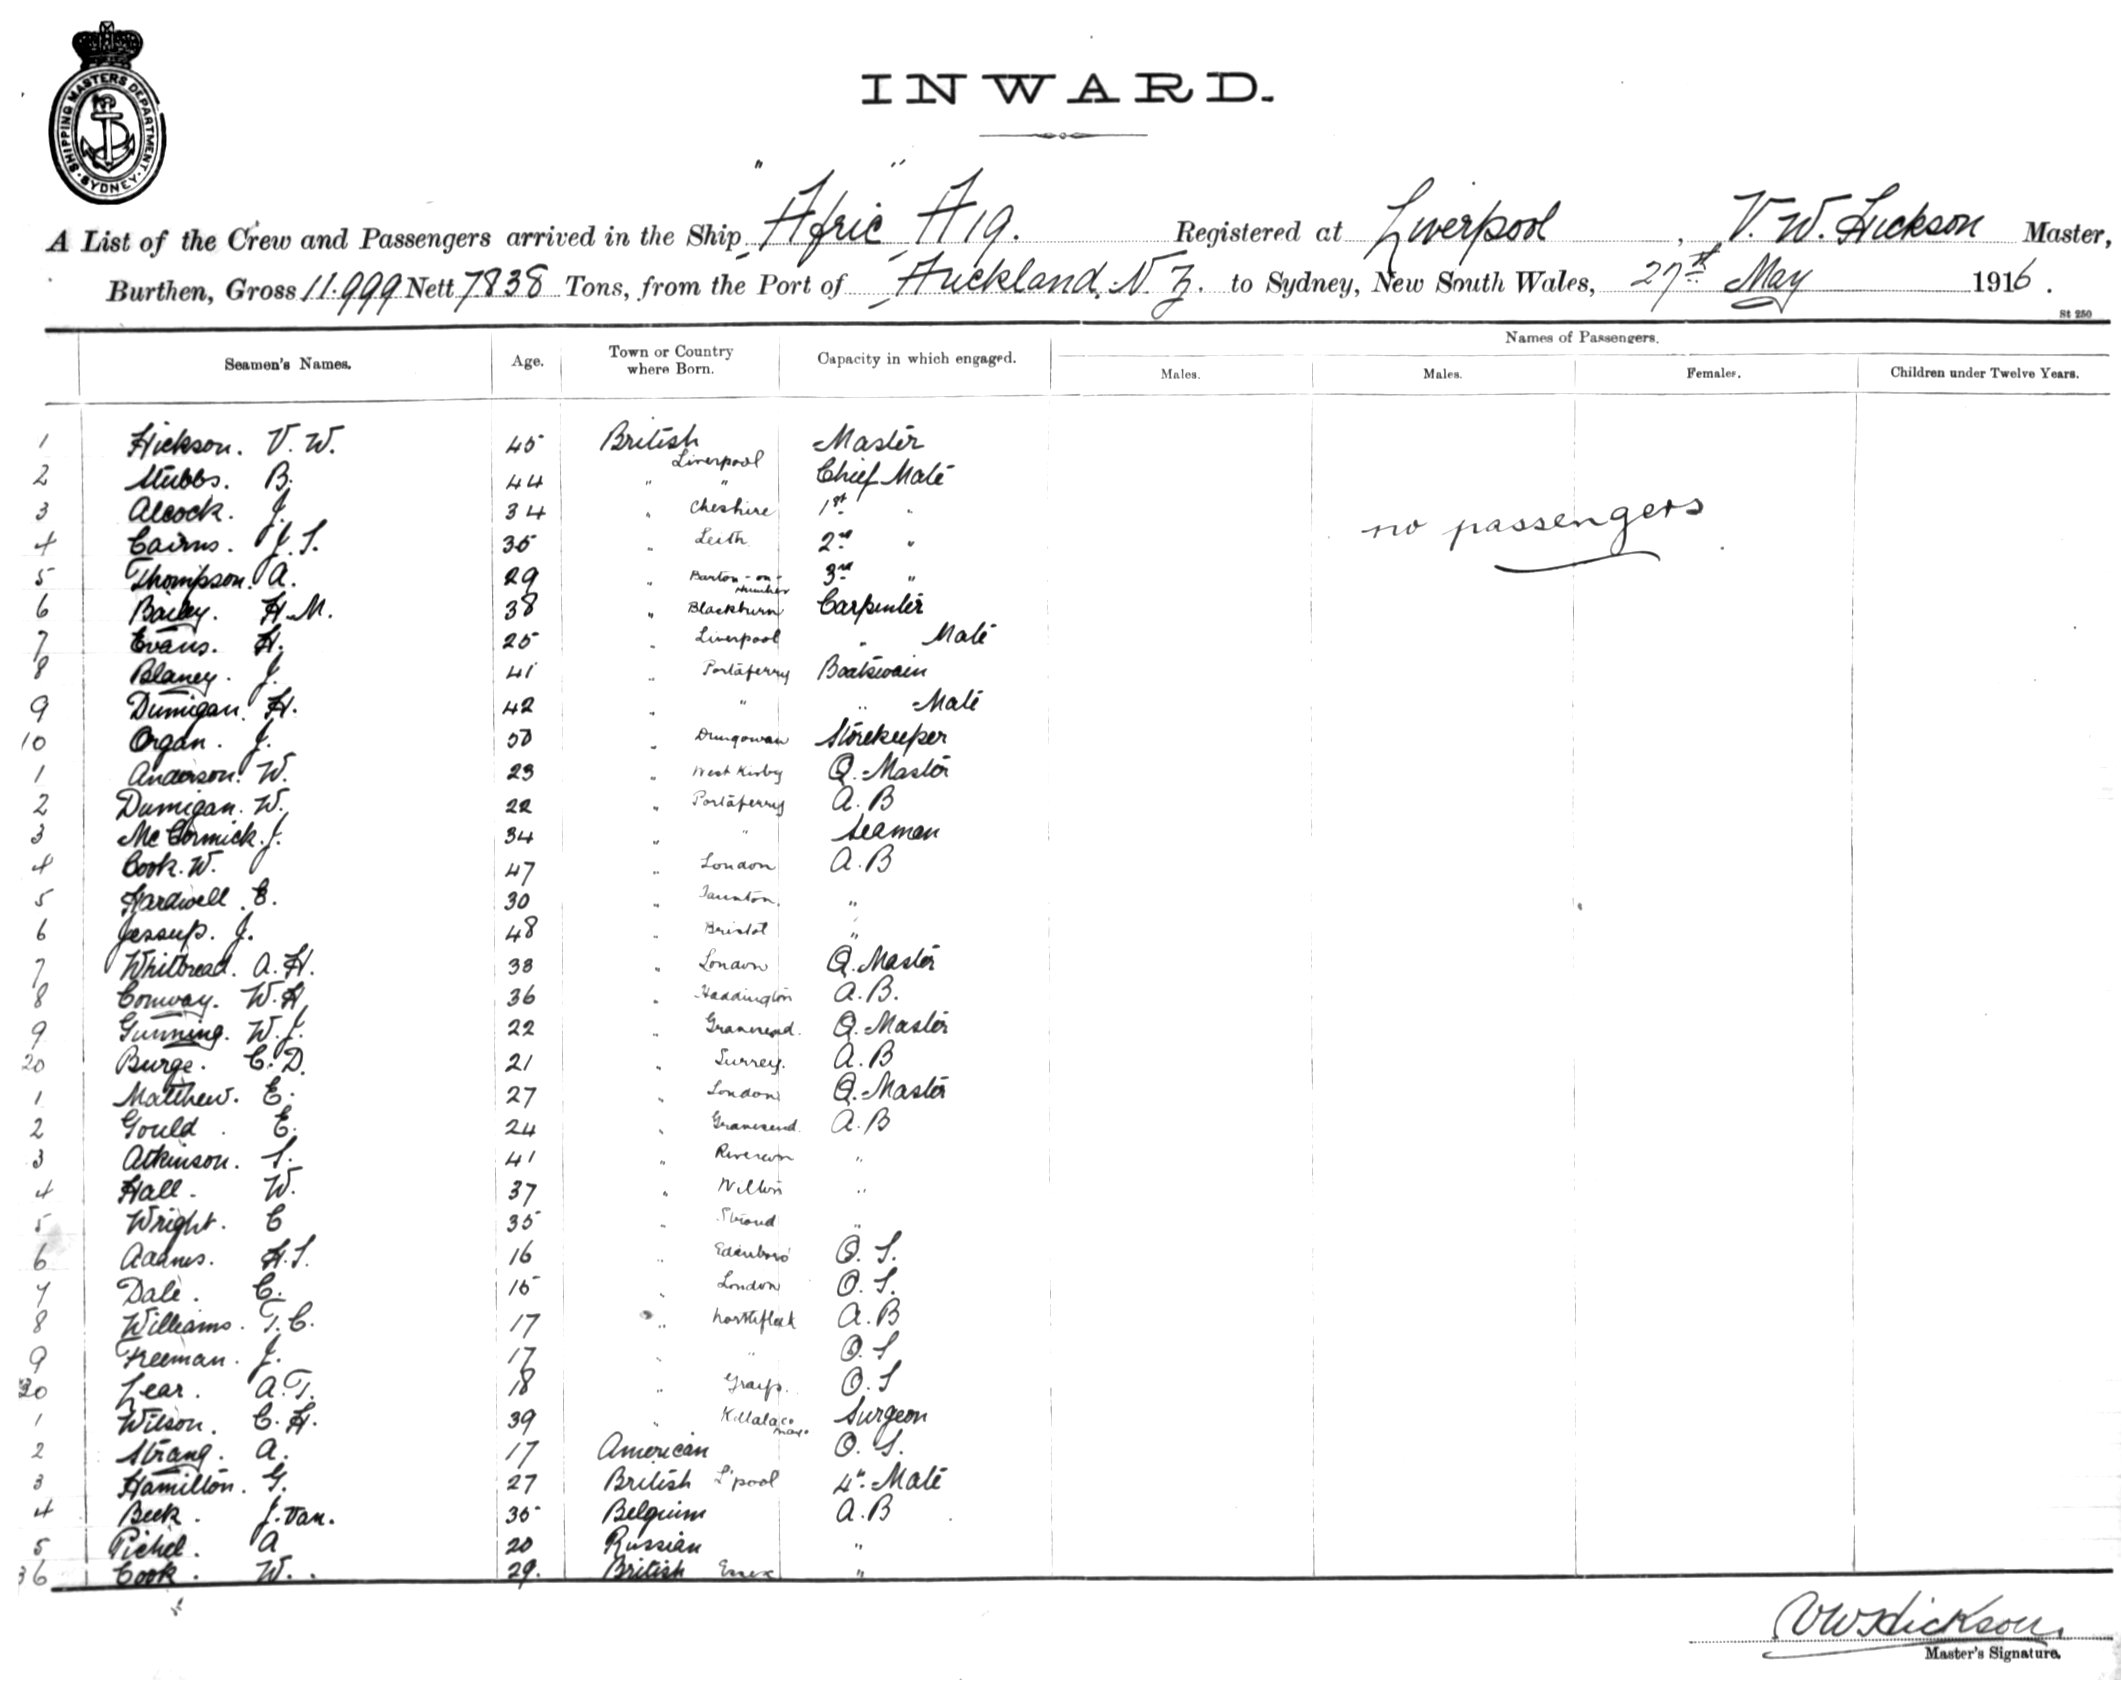 SHIPPING MASTERS DEPARTMENT
SYDNEY
INWARD.
A List of the Crew and Passengers arrived in the Ship "Afric" A19. Registered at Liverpool, V. W. Hickson Master,
Burthen, Gross 11.999 Nett 7838 Tons, from the Port of Auckland, N. Z. to Sydney, New South Wales, 27st May 1916.
St 250
Seamen's Names. Age. Town or Country where Born. Capacity in which engaged. Names of Passengers.
Males. Males. Females. Children under Twelve Years.
1 Hickson. V. W. 45 British Liverpool Master
2 Stubbs. B. 44 " " Chief Mate
3 Alcock. J. 34 " Cheshire 1st "
no passengers
4 Cairns. J. S. 35 " Leith 2nd "
5 Thompson. A. 29 " Barton-on-Humber 3rd "
6 Bailey. H. M. 38 " Blackburn Carpenter
7 Evans. H. 25 " Liverpool " Mate
8 Blaney. J. 41 " Portaferry Boatswain
9 Dumigan. H. 42 " " " Mate
10 Organ. J. 50 " Storekeeper
1 Anderson. W. 23 " West Kirby Q. Master
2 Dumigan. W. 22 " Portaferry A. B
3 McCormick. J. 34 " " Seaman
4 Cook. W. 47 " London A. B
5 Hardwell. E. 30 " Taunton. "
6 Jessup. J. 48 " Bristol "
7 Whitbread. A. H. 38 " London Q. Master
8 Conway. W. H. 36 " Haddington A. B.
9 Gunning. W. J. 22 " Gravesend. Q. Master
20 Burge. C. D. 21 " Surrey. A. B
1 Matthew. E. 27 " London Q. Master
2 Gould. E. 24 " Gravesend. A. B
3 Atkinson. S. 41 " "
4 Hall. W. 37 " Wilton "
5 Wright. C 35 " Stroud "
6 Adams. H. S. 16 " Edinboro' O. S.
7 Dale. C. 15 " London O. S.
8 Williams. T. C. 17 " Northfleet A. B
9 Freeman. J. 17 " " O. S
30 Lear. A. T. 18 " Grays. O. S
1 Wilson. C. H. 39 " Killala Co Mayo. Surgeon
2 Strang. A. 17 American O. S.
3 Hamilton. G. 27 British L'pool 4th Mate
4 Beek. J. Van. 35 Belgium A. B
5 Pichel. A 20 Russian "
36 Cook. W. 29. British Essex "
V W Hickson.
Master's Signature.